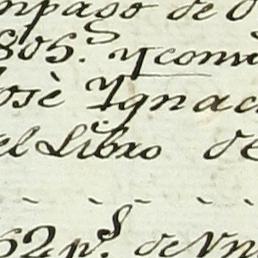 mpaso de
805. y com
osè Ygnac
el Libro de
62 p.s de Un